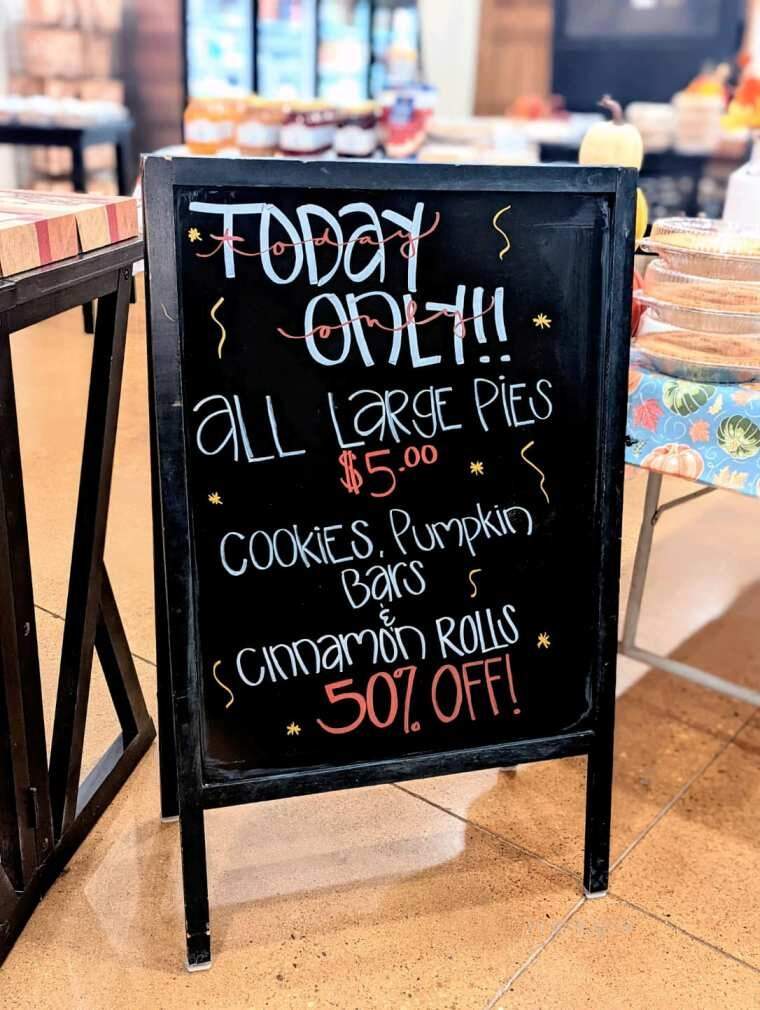 TODAY
today
ONLY!!
only
ALL LARGE PIES
$5.00
COOKIES, PUMPKIN
BARS
&
CINNAMON ROLLS
50% OFF!